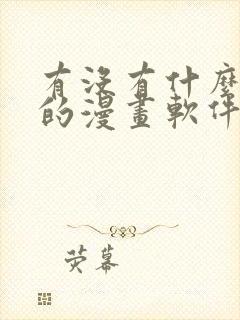 有沒有什麼
的漫畫軟件
荧幕